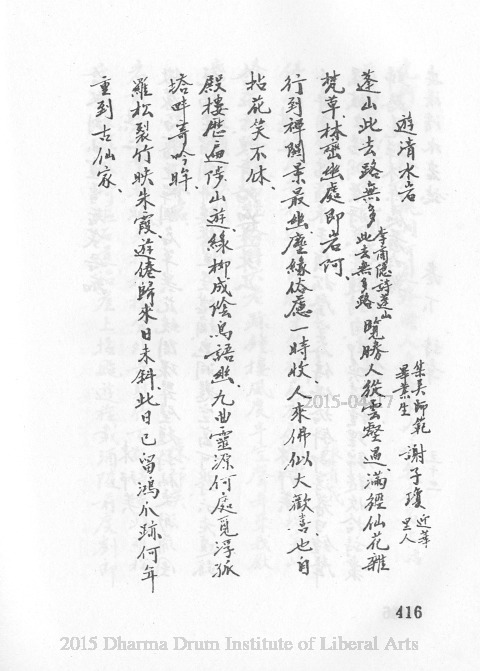 遊清水岩
集美師範畢業生 謝子瓊 近華里人
蓬山此去路無多李商隱詩蓬山此去無多路覽勝人從雲壑過滿徑仙花雜
梵草林巒幽處即岩阿
行到禪關景最幽塵緣俗慮一時收人來佛似大歡喜也自
拈花笑不休
殿樓歷遍陟山遊綠柳成陰鳥語幽九曲靈源何處覓浮狐
塔畔寄吟眸
羅松裂竹映朱霞遊倦歸來日未斜此日已留鴻爪跡何年
重到古仙家
2015-04-07
416
2015 Dharma Drum Institute of Liberal Arts